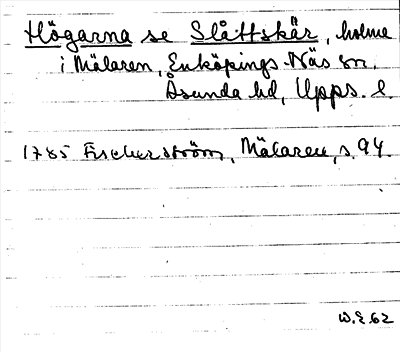 Högarna se Slåttskär, holme
i Mälaren, Enköpings-Näs sn,
Åsunda hd, Upps. l.
1785 Fischerström, Mälaren, s. 94.
W.E. 62